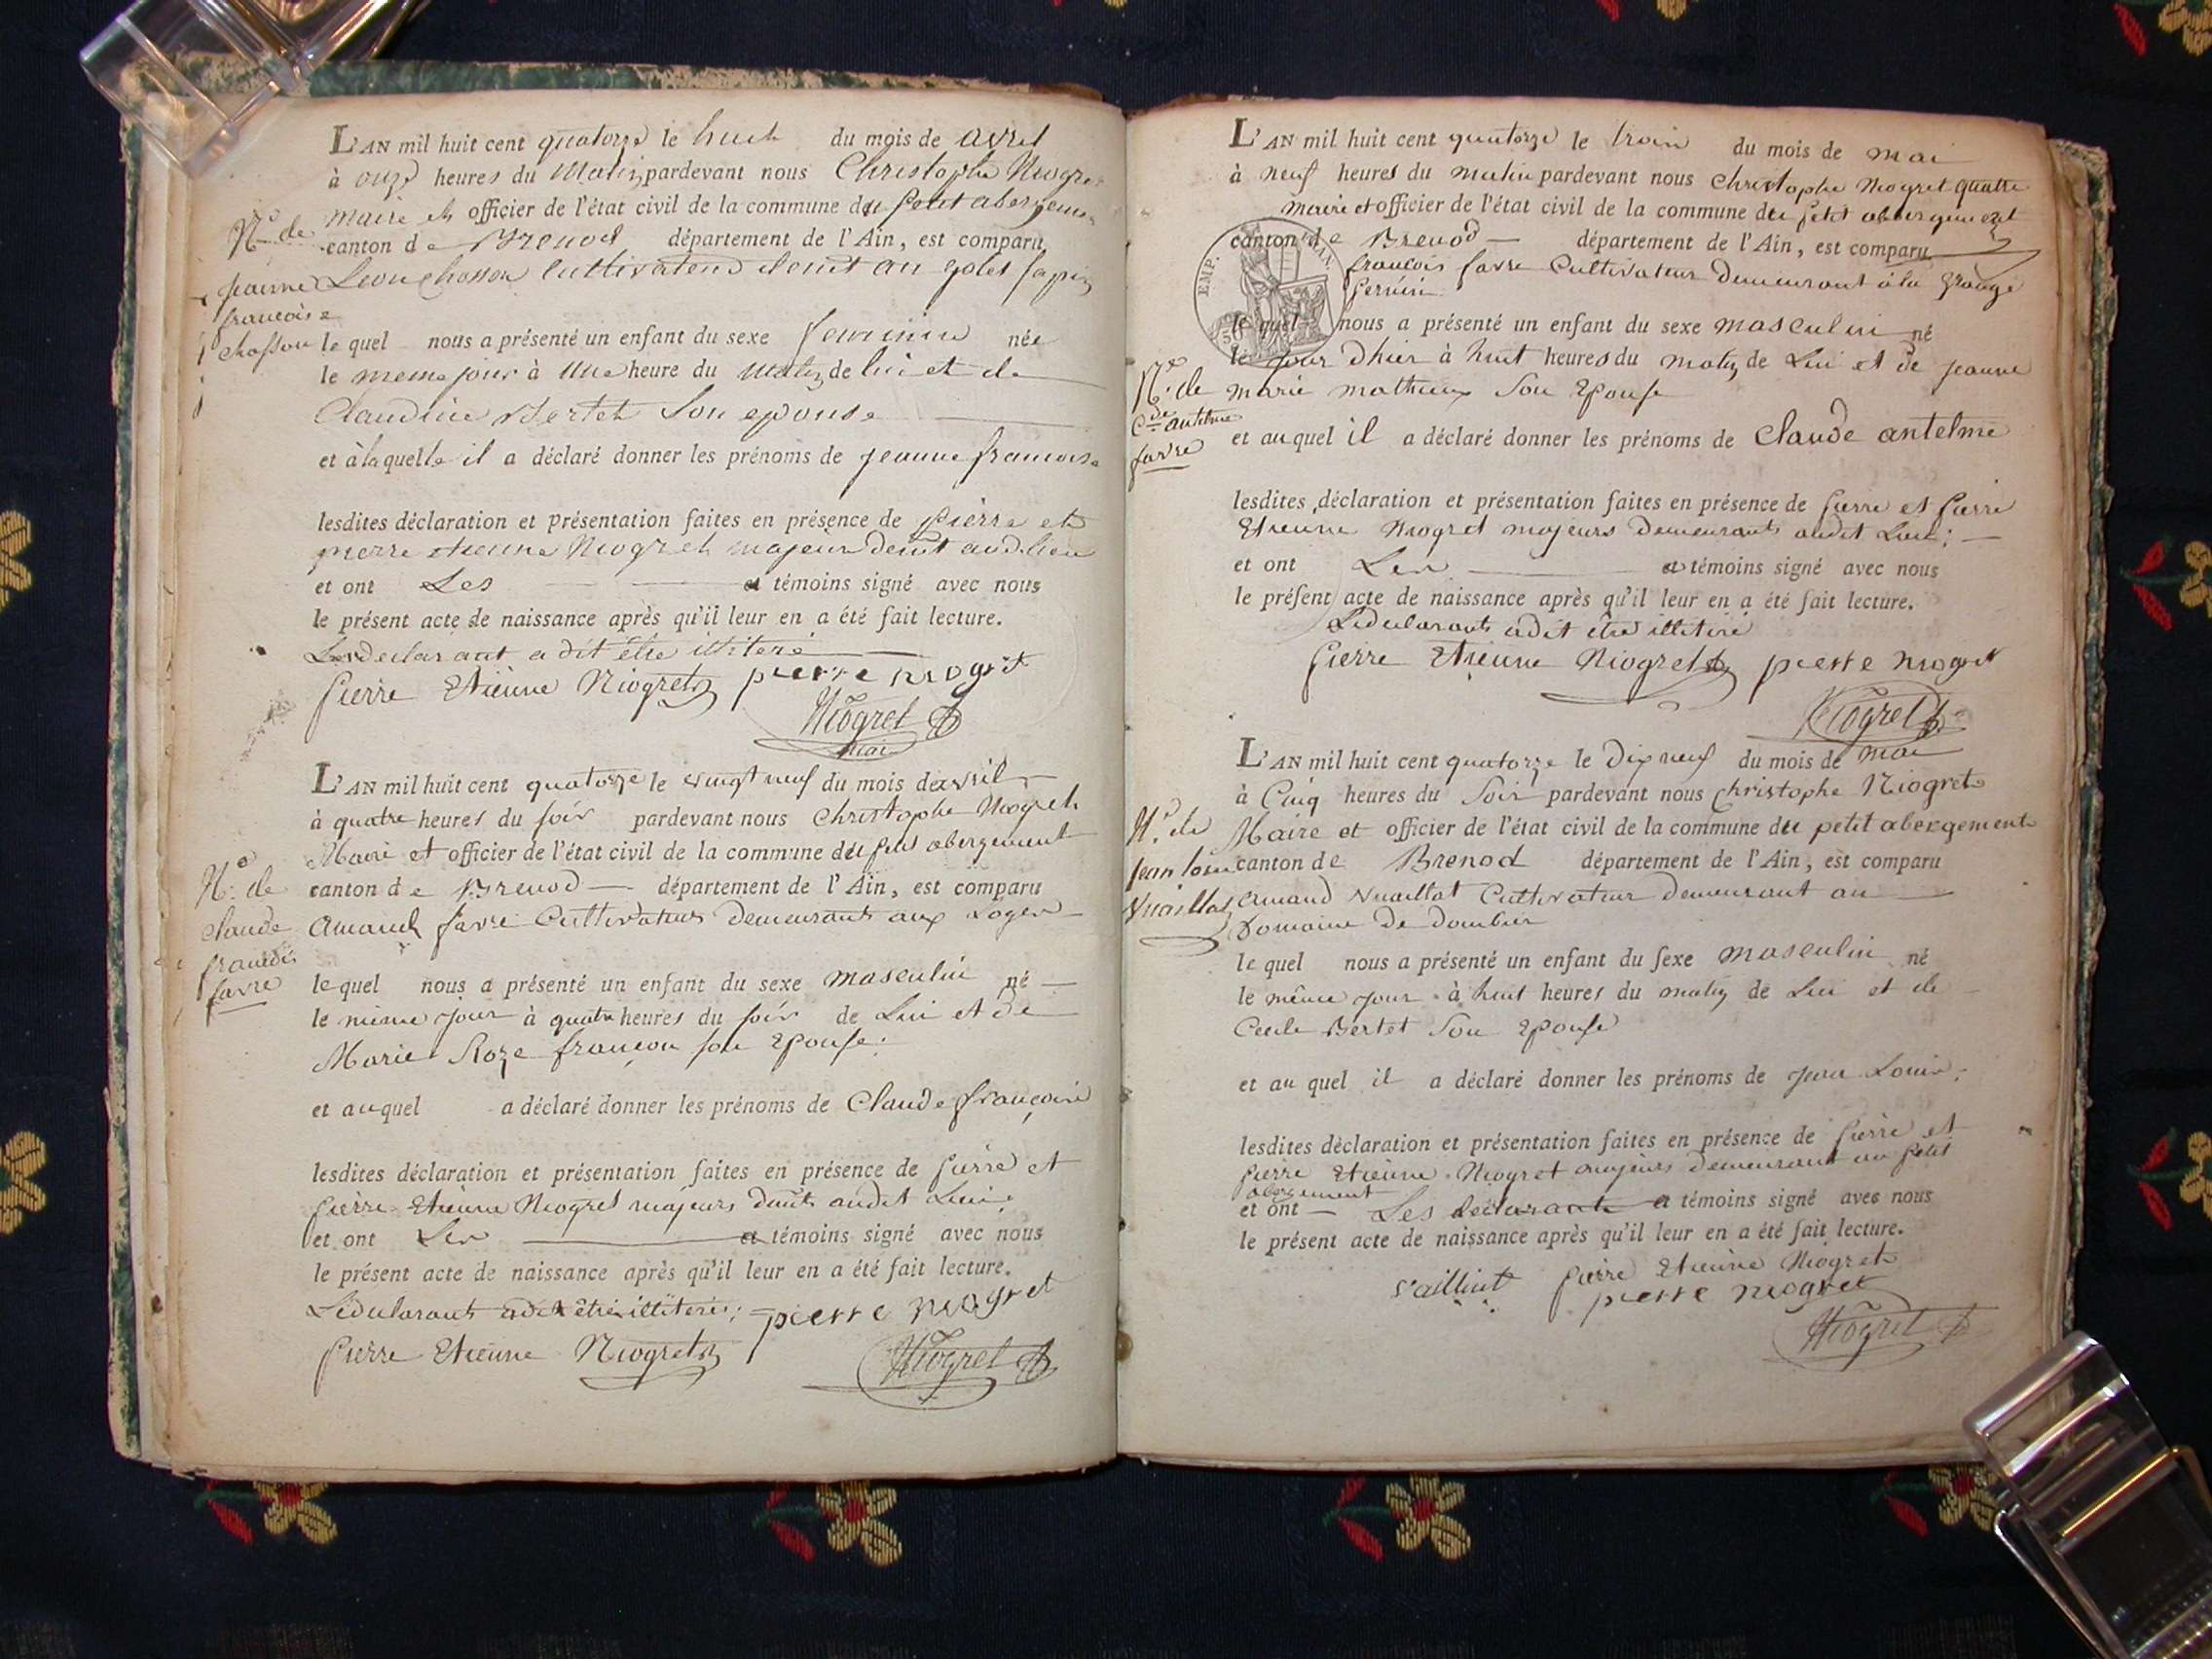 L'AN mil huit cent quatorze le huit du mois de avril
à onze heures du Matin pardevant nous Christophe Niogret
maire et officier de l'état civil de la commune du petit abergement
canton de Brenod département de l'Ain, est comparu
Leon chosson Cultivateur demt au golet sapin
Nce de
jeanne
francoise
chosson
le quel nous a présenté un enfant du sexe feminin née
le meme jour à Une heure du Matin de lui et de
Claudine Bertet Son epouse
et à laquelle il a déclaré donner les prénoms de jeanne francoise
lesdites déclaration et présentation faites en présence de pierre et
pierre etienne Niogret majeur demt aud. lieu
et ont Les et témoins signé avec nous
le présent acte de naissance après qu'il leur en a été fait lecture.
Ledeclarant a dit être illiteré
pierre Etienne Niogret pierre niogret
Niogret
mai
L'AN mil huit cent quatorze le vingt neuf du mois davril
à quatre heures du soir pardevant nous Christophe Niogret
Maire et officier de l'état civil de la commune du petit abergement
canton de Brenod département de l'Ain, est comparu
Amand favre Cultivateur demeurant aux Loges
Nce de
claude
francois
favre
lequel nous a présenté un enfant du sexe masculin né
le même jour à quatre heures du soir de Lui et de
Marie Roze françon son Epouse.
et auquel a déclaré donner les prénoms de Claude françois
lesdites déclaration et présentation faites en présence de pierre et
pierre Etienne Niogret majeurs demt audit Lieu;
et ont Les et témoins signé avec nous
le présent acte de naissance après qu'il leur en a été fait lecture.
Ledeclarant adit être illiteré; pierre niogret
pierre Etienne Niogret Niogret
L'AN mil huit cent quatorze le trois du mois de mai
à neuf heures du matin pardevant nous christophe Niogret
maire et officier de l'état civil de la commune du petit abergement
canton de Brenod département de l'Ain, est comparu
francois favre Cultivateur Demeurant à la Grange
perrin
EMP.
le quel nous a présenté un enfant du sexe masculin né
le jour d'hier à huit heures du matin de Lui et de jeanne
marie mathieux Son Epouse
Nce de
Cde antelme
favre
et au quel il a déclaré donner les prénoms de Claude antelme
lesdites déclaration et présentation faites en présence de pierre et pierre
Etienne Niogret majeurs Demeurants audit Lieu;
et ont Les et témoins signé avec nous
le présent acte de naissance après qu'il leur en a été fait lecture.
Ledeclarant adit être illiteré
pierre Etienne Niogret pierre niogret
Niogret
L'AN mil huit cent quatorze le Dix neuf du mois de mai
à Cinq heures du Soir pardevant nous christophe Niogret
Maire et officier de l'état civil de la commune du petit abergement
canton de Brenod département de l'Ain, est comparu
Amand Vuaillat Cultivateur demeurant au
Domaine De dombier
Nce de
jean louis
Vuaillat
le quel nous a présenté un enfant du sexe masculin né
le même jour à huit heures du matin de Lui et de
Cecile Bertet Son Epouse
et au quel il a déclaré donner les prénoms de jean Louis;
lesdites déclaration et présentation faites en présence de pierre et
pierre Etienne Niogret majeurs demeurant au petit
abergement
et ont Les declarant et témoins signé avec nous
le présent acte de naissance après qu'il leur en a été fait lecture.
pierre Etienne Niogret
pierre niogret
Niogret